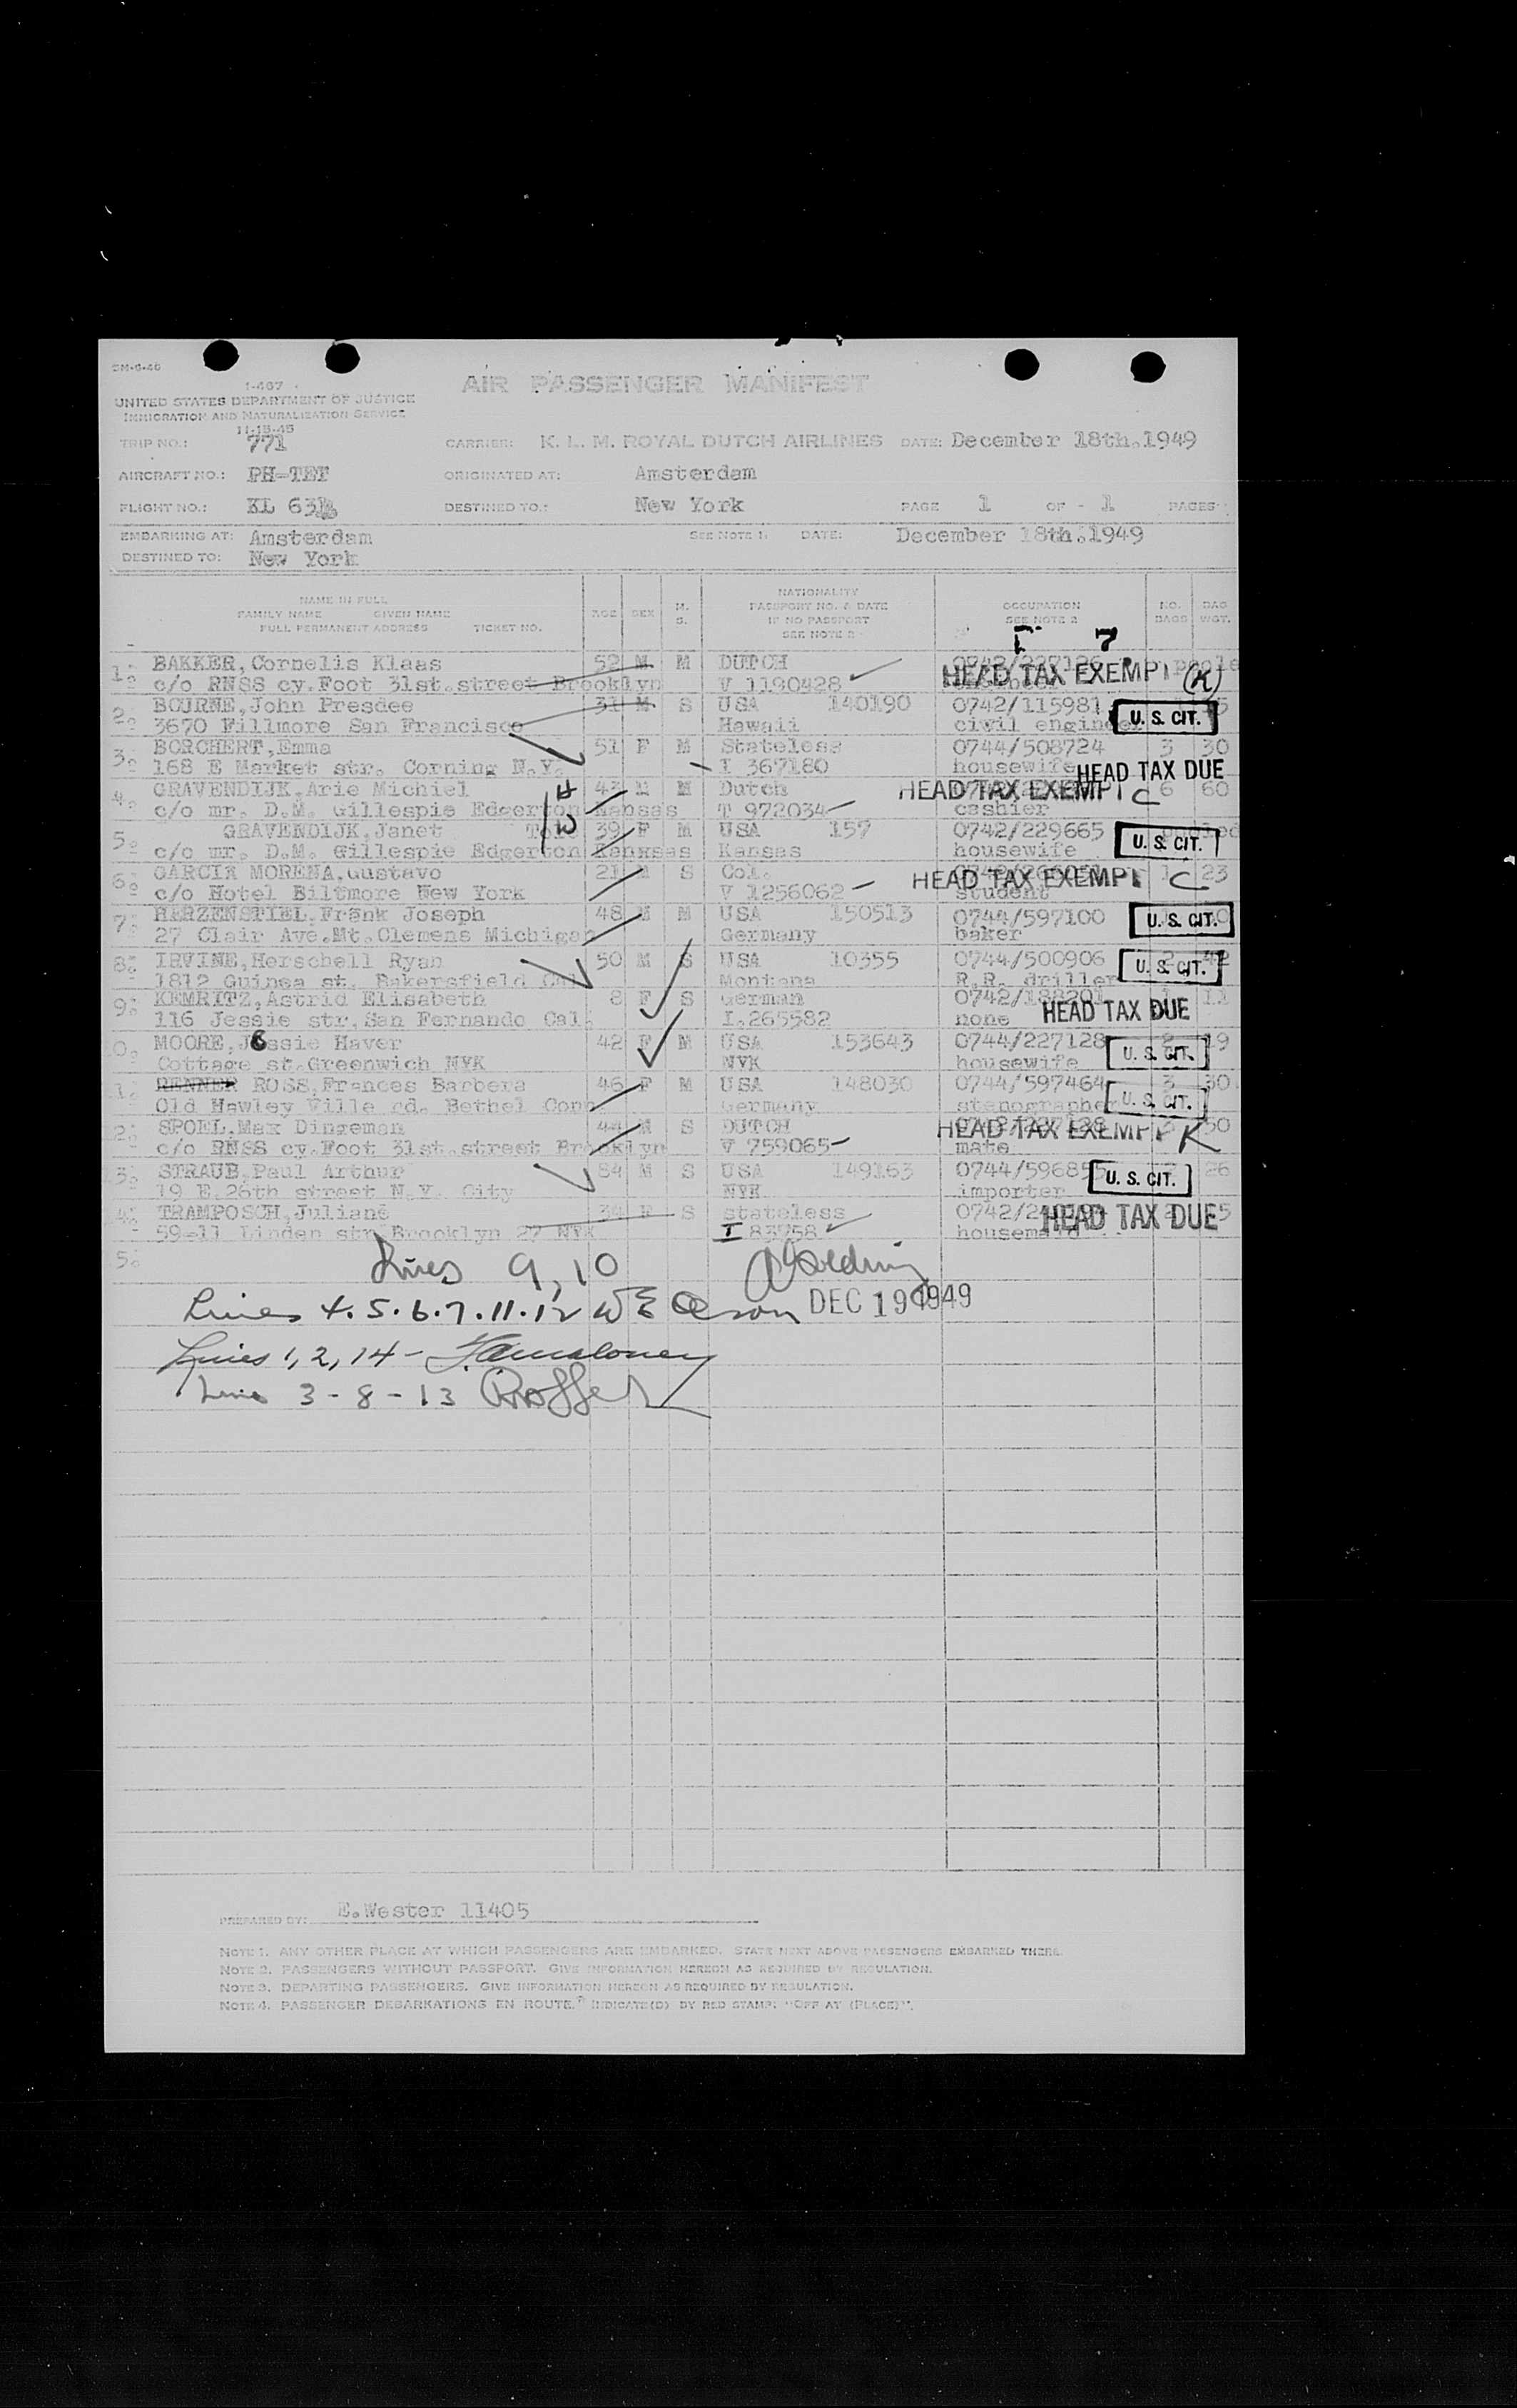 5M-6-46
I-467
UNITED STATES DEPARTMENT OF JUSTICE
IMMIGRATION AND NATURALIZATION SERVICE
11-15-45
AIR PASSENGER MANIFEST
TRIP NO.: 771 CARRIER: K. L. M. ROYAL DUTCH AIRLINES DATE: December 18th.1949
AIRCRAFT NO.: PH-TET ORIGINATED AT: Amsterdam
FLIGHT NO.: KL 63 DESTINED TO.: New York PAGE 1 OF - 1 PAGES
EMBARKING AT: Amsterdam SEE NOTE 1. DATE: December 18th.1949
DESTINED TO: New York
NAME IN FULL
FAMILY NAME GIVEN NAME
FULL PERMANENT ADDRESS TICKET NO.
AGE SEX M. S.
NATIONALITY
PASSPORT NO. & DATE
IF NO PASSPORT
SEE NOTE 2
OCCUPATION
SEE NOTE 2
NO. BAGS BAG WGT.
7
1. BAKKER, Cornelis Klaas 52 M M DUTCH
c/o RNSS cy.Foot 31st.street Brooklyn V 1190428 HEAD TAX EXEMPT K
2. BOURNE, John Presdee 31 M S USA 140190 0742/115981
3670 Fillmore San Francisco Hawaii civil engineer U. S. CIT.
3. BORCHERT, Emma 51 F M Stateless 0744/508724 3 30
168 E Market str. Corning N.Y. I 367180 housewife HEAD TAX DUE
4. GRAVENDIJK, Arie Michiel H 43 M M Dutch HEAD TAX EXEMPT C 6 60
c/o mr. D.M. Gillespie Edgerton Kansas T 972034 cashier
5. GRAVENDIJK, Janet W 39 F M USA 157 0742/229665
c/o mr. D.M. Gillespie Edgerton Kanssas Kansas housewife U. S. CIT.
6. GARCIA MORENA, Gustavo 21 M S Col. HEAD TAX EXEMPT C 1 23
c/o Hotel Biltmore New York V 1256062 student
7. HERZENSTIEL, Frank Joseph 48 M M USA 150513 0744/597100 U. S. CIT.
27 Clair Ave.Mt.Clemens Michigan Germany baker
8. IRVINE, Herschell Ryan 50 M S USA 10355 0744/500906 2 42
1812 Guinea st. Bakersfield Cal Montana R.R. driller U. S. CIT.
9. KEMRITZ, Astrid Elisabeth 8 F S German 0742/188201 1 11
116 Jessie str. San Fernando Cal. I.265582 none HEAD TAX DUE
0. MOORE, Jessie Haver 42 F M USA 153643 0744/227128 2 19
Cottage st.Greenwich NYK NYK housewife U. S. CIT.
1. RENNER ROSS, Frances Barbera 46 F M USA 148030 0744/597464 3 30
Old Hawley Ville rd. Bethel Conn Germany stenographer U. S. CIT.
2. SPOEL, Max Dingeman 44 M S DUTCH HEAD TAX EXEMPT K 50
c/o RNSS cy.Foot 31st.street Brooklyn V 759065 mate
3. STRAUB, Paul Arthur 84 M S USA 149163 0744/596855 26
19 E.26th street N.Y. City NYK importer U. S. CIT.
4. TRAMPOSCH, Juliane 34 F S stateless HEAD TAX DUE
59-11 Linden str Brooklyn 27 NYK I 83758 housemaid
5.
Lines 9, 10
Lines 4.5.6.7.11.12 DEC 19 1949
Lines 1, 2, 14 -
Line 3 - 8 - 13
PREPARED BY: E.Wester 11405
NOTE 1. ANY OTHER PLACE AT WHICH PASSENGERS ARE EMBARKED. STATE NEXT ABOVE PASSENGERS EMBARKED THERE.
NOTE 2. PASSENGERS WITHOUT PASSPORT. GIVE INFORMATION HEREON AS REQUIRED BY REGULATION.
NOTE 3. DEPARTING PASSENGERS. GIVE INFORMATION HEREON AS REQUIRED BY REGULATION.
NOTE 4. PASSENGER DEBARKATIONS EN ROUTE. INDICATE(D) BY RED STAMP: "OFF AT (PLACE)".